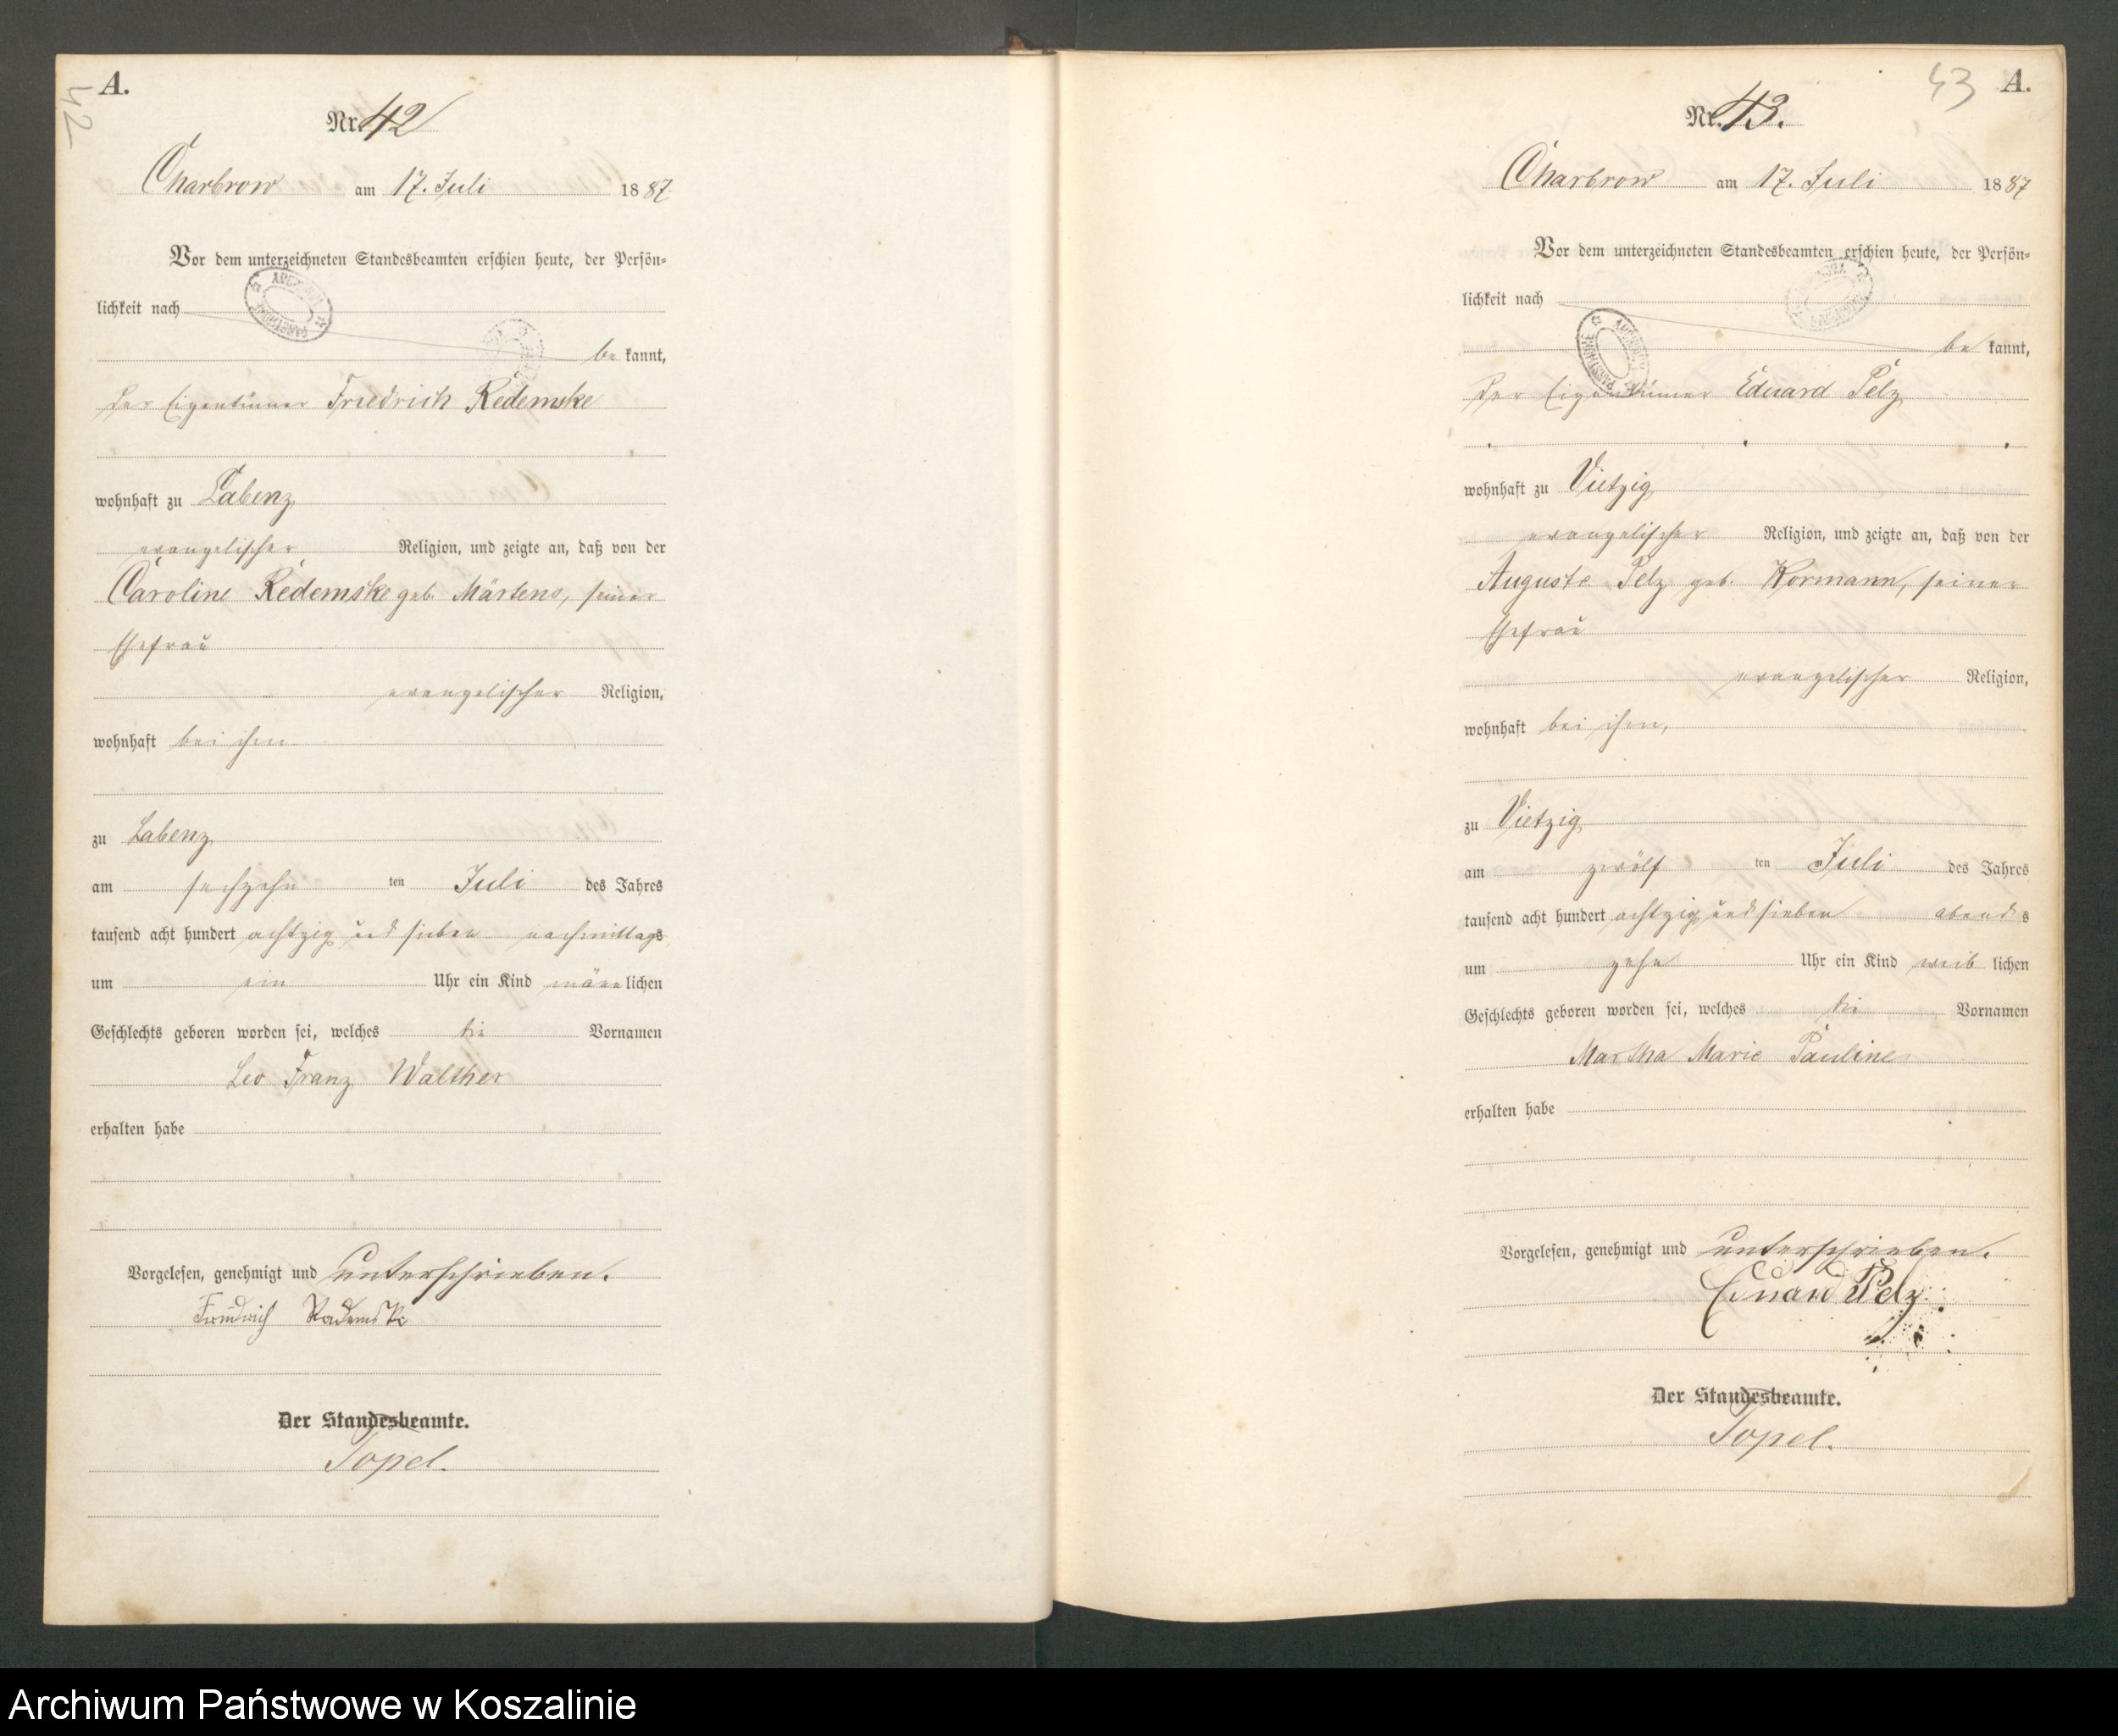 42
A.
Nr. 42
Charbrow am 17. Juli 1887.
Vor dem unterzeichneten Standesbeamten erschien heute, der Persön-
lichkeit nach
be kannt,
der Eigentümer Friedrich Redemske
wohnhaft zu Labenz
evangelischer Religion, und zeigte an, daß von der
Caroline Redemske geb. Märtens, seiner
Ehefrau
evangelischer Religion,
wohnhaft bei ihm
zu Labenz
am sechzehn ten Juli des Jahres
tausend acht hundert achtzig und sieben nachmittags
um ein Uhr ein Kind männlichen
Geschlechts geboren worden sei, welches die Vornamen
Leo Franz Walther
erhalten habe
Vorgelesen, genehmigt und unterschrieben.
Friedrich
Der Standesbeamte.
Topel.
43
A.
Nr. 43.
Charbrow am 17. Juli 1887
Vor dem unterzeichneten Standesbeamten erschien heute, der Persön-
lichkeit nach
be kannt,
der Eigentümer Eduard Pelz
wohnhaft zu Vietzig
evangelischer Religion, und zeigte an, daß von der
Auguste Pelz geb. Kormann, seiner
Ehefrau
evangelischer Religion,
wohnhaft bei ihm,
zu Vietzig
am zwölf ten Juli des Jahres
tausend acht hundert achtzig und sieben abends
um zehn Uhr ein Kind weib lichen
Geschlechts geboren worden sei, welches die Vornamen
Martha Marie Pauline
erhalten habe
Vorgelesen, genehmigt und unterschrieben.
Eduard Pelz.
Der Standesbeamte.
Topel.
Archiwum Państwowe w Koszalinie